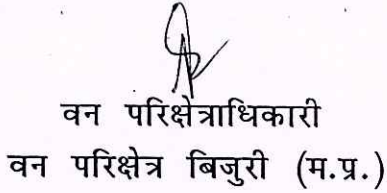 वन परिक्षेत्राधिकारी
वन परिक्षेत्र बिजुरी (म.प्र.)